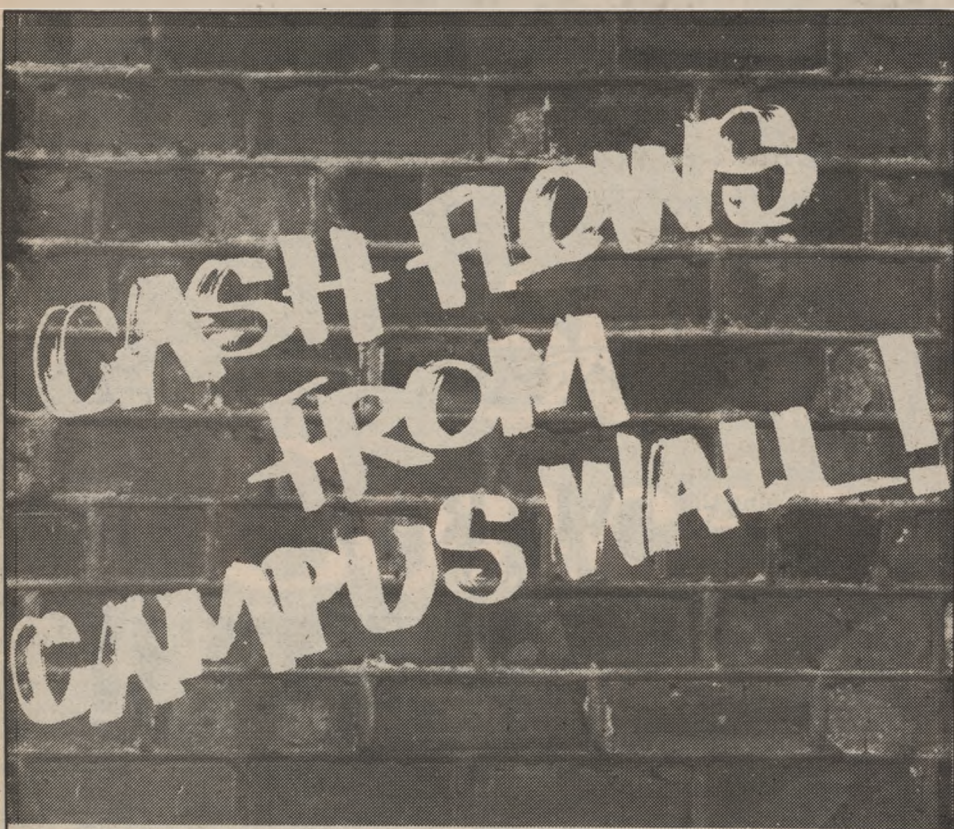 CASH FLOWS
FROM
CAMPUS WALL!